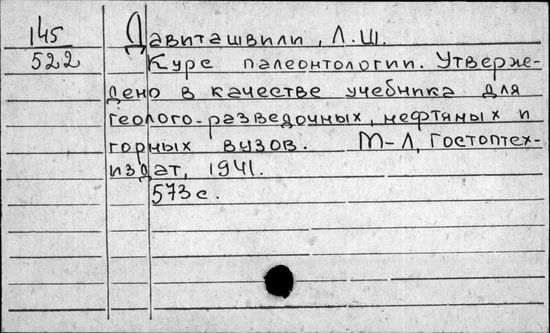 145
522
Давиташвили, Л.Ш.
Курс палеонтологии. Утвержде-
дено в качестве учебника для
геолого-разведочных, нефтяных и
горных вузов. М-Л, Гостоптех-
издат, 1941.
573с.